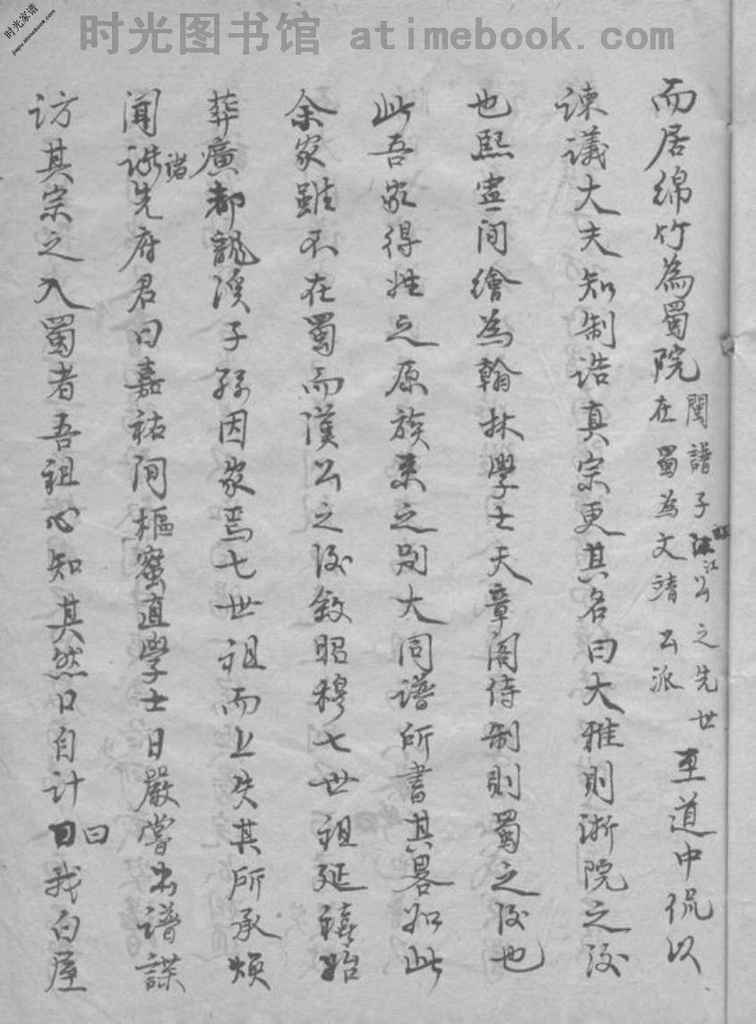 时光图书馆 atimebook.com
时光家谱
而居绵竹為蜀院 閩譜子江公之先世 在蜀為文靖公派 至道中侃以
谏議大夫知制诰真宗更其名曰大雅則浙院之後
也熙寧间繪為翰林學士天章阁侍制則蜀之後也
此吾家得姓之原族系之别大同谱所書其畧如此
余家雖不在蜀而漢公之後叙昭穆七世祖延禧始
葬廣都龍溪子孫因家焉七世祖而上失其所承煩
闻诸先府君曰嘉祐间樞密直學士日嚴嘗出谱諜
访其宗之入蜀者吾祖心知其然口自计曰我白屋